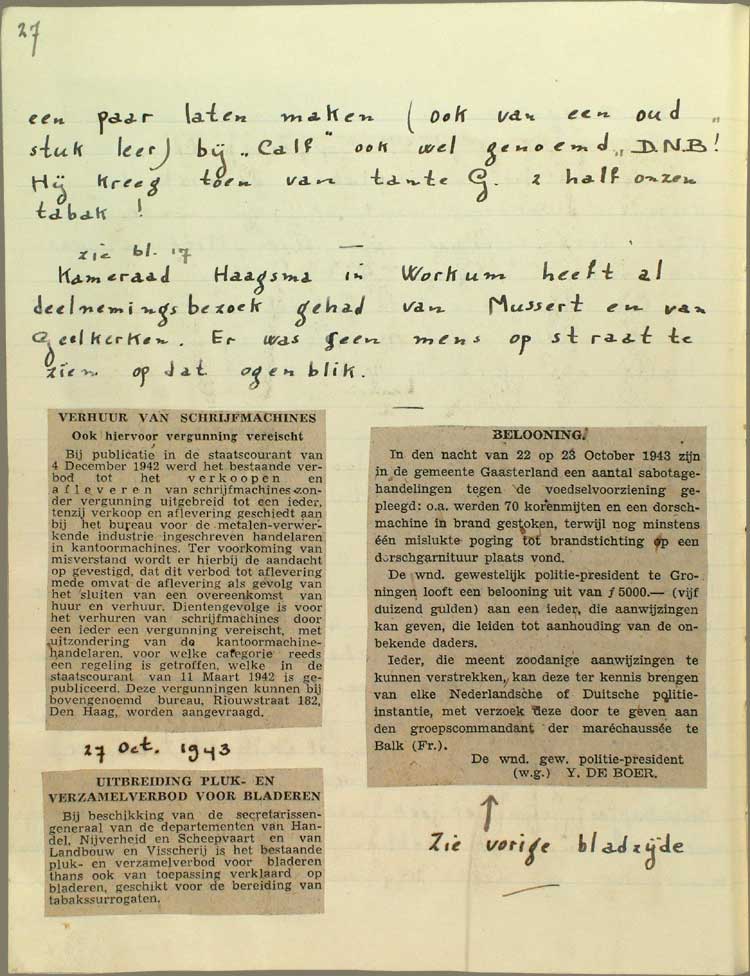 27
een paar laten maken (ook van een oud „
stuk leer) bij „Calf" ook wel genoemd „D.N.B!
Hij kreeg toen van tante G. 2 half onzen
tabak !
zie bl. 17
Kameraad Haagsma in Workum heeft al
deelnemingsbezoek gehad van Mussert en van
Geelkerken. Er was geen mens op straat te
zien op dat ogenblik.
VERHUUR VAN SCHRIJFMACHINES
Ook hiervoor vergunning vereischt
Bij publicatie in de staatscourant van
4 December 1942 werd het bestaande ver-
bod tot het verkoopen en
afleveren van schrijfmachines zon-
der vergunning uitgebreid tot een ieder,
tenzij verkoop en aflevering geschiedt aan
bij het bureau voor de metalen-verwer-
kende industrie ingeschreven handelaren
in kantoormachines. Ter voorkoming van
misverstand wordt er hierbij de aandacht
op gevestigd, dat dit verbod tot aflevering
mede omvat de aflevering als gevolg van
het sluiten van een overeenkomst van
huur en verhuur. Dientengevolge is voor
het verhuren van schrijfmachines door
een ieder een vergunning vereischt, met
uitzondering van de kantoormachine-
handelaren, voor welke categorie reeds
een regeling is getroffen, welke in de
staatscourant van 11 Maart 1942 is ge-
publiceerd. Deze vergunningen kunnen bij
bovengenoemd bureau, Riouwstraat 182,
Den Haag, worden aangevraagd.
27 Oct. 1943
UITBREIDING PLUK- EN
VERZAMELVERBOD VOOR BLADEREN
Bij beschikking van de secretarissen-
generaal van de departementen van Han-
del, Nijverheid en Scheepvaart en van
Landbouw en Visscherij is het bestaande
pluk- en verzamelverbod voor bladeren
thans ook van toepassing verklaard op
bladeren, geschikt voor de bereiding van
tabakssurrogaten.
BELOONING.
In den nacht van 22 op 23 October 1943 zijn
in de gemeente Gaasterland een aantal sabotage-
handelingen tegen de voedselvoorziening ge-
pleegd: o.a. werden 70 korenmijten en een dorsch-
machine in brand gestoken, terwijl nog minstens
één mislukte poging tot brandstichting op een
dorschgarnituur plaats vond.
De wnd. gewestelijk politie-president te Gro-
ningen looft een belooning uit van ƒ 5000.— (vijf
duizend gulden) aan een ieder, die aanwijzingen
kan geven, die leiden tot aanhouding van de on-
bekende daders.
Ieder, die meent zoodanige aanwijzingen te
kunnen verstrekken, kan deze ter kennis brengen
van elke Nederlandsche of Duitsche politie-
instantie, met verzoek deze door te geven aan
den groepscommandant der maréchaussée te
Balk (Fr.).
De wnd. gew. politie-president
(w.g.) Y. DE BOER.
Zie vorige bladzijde